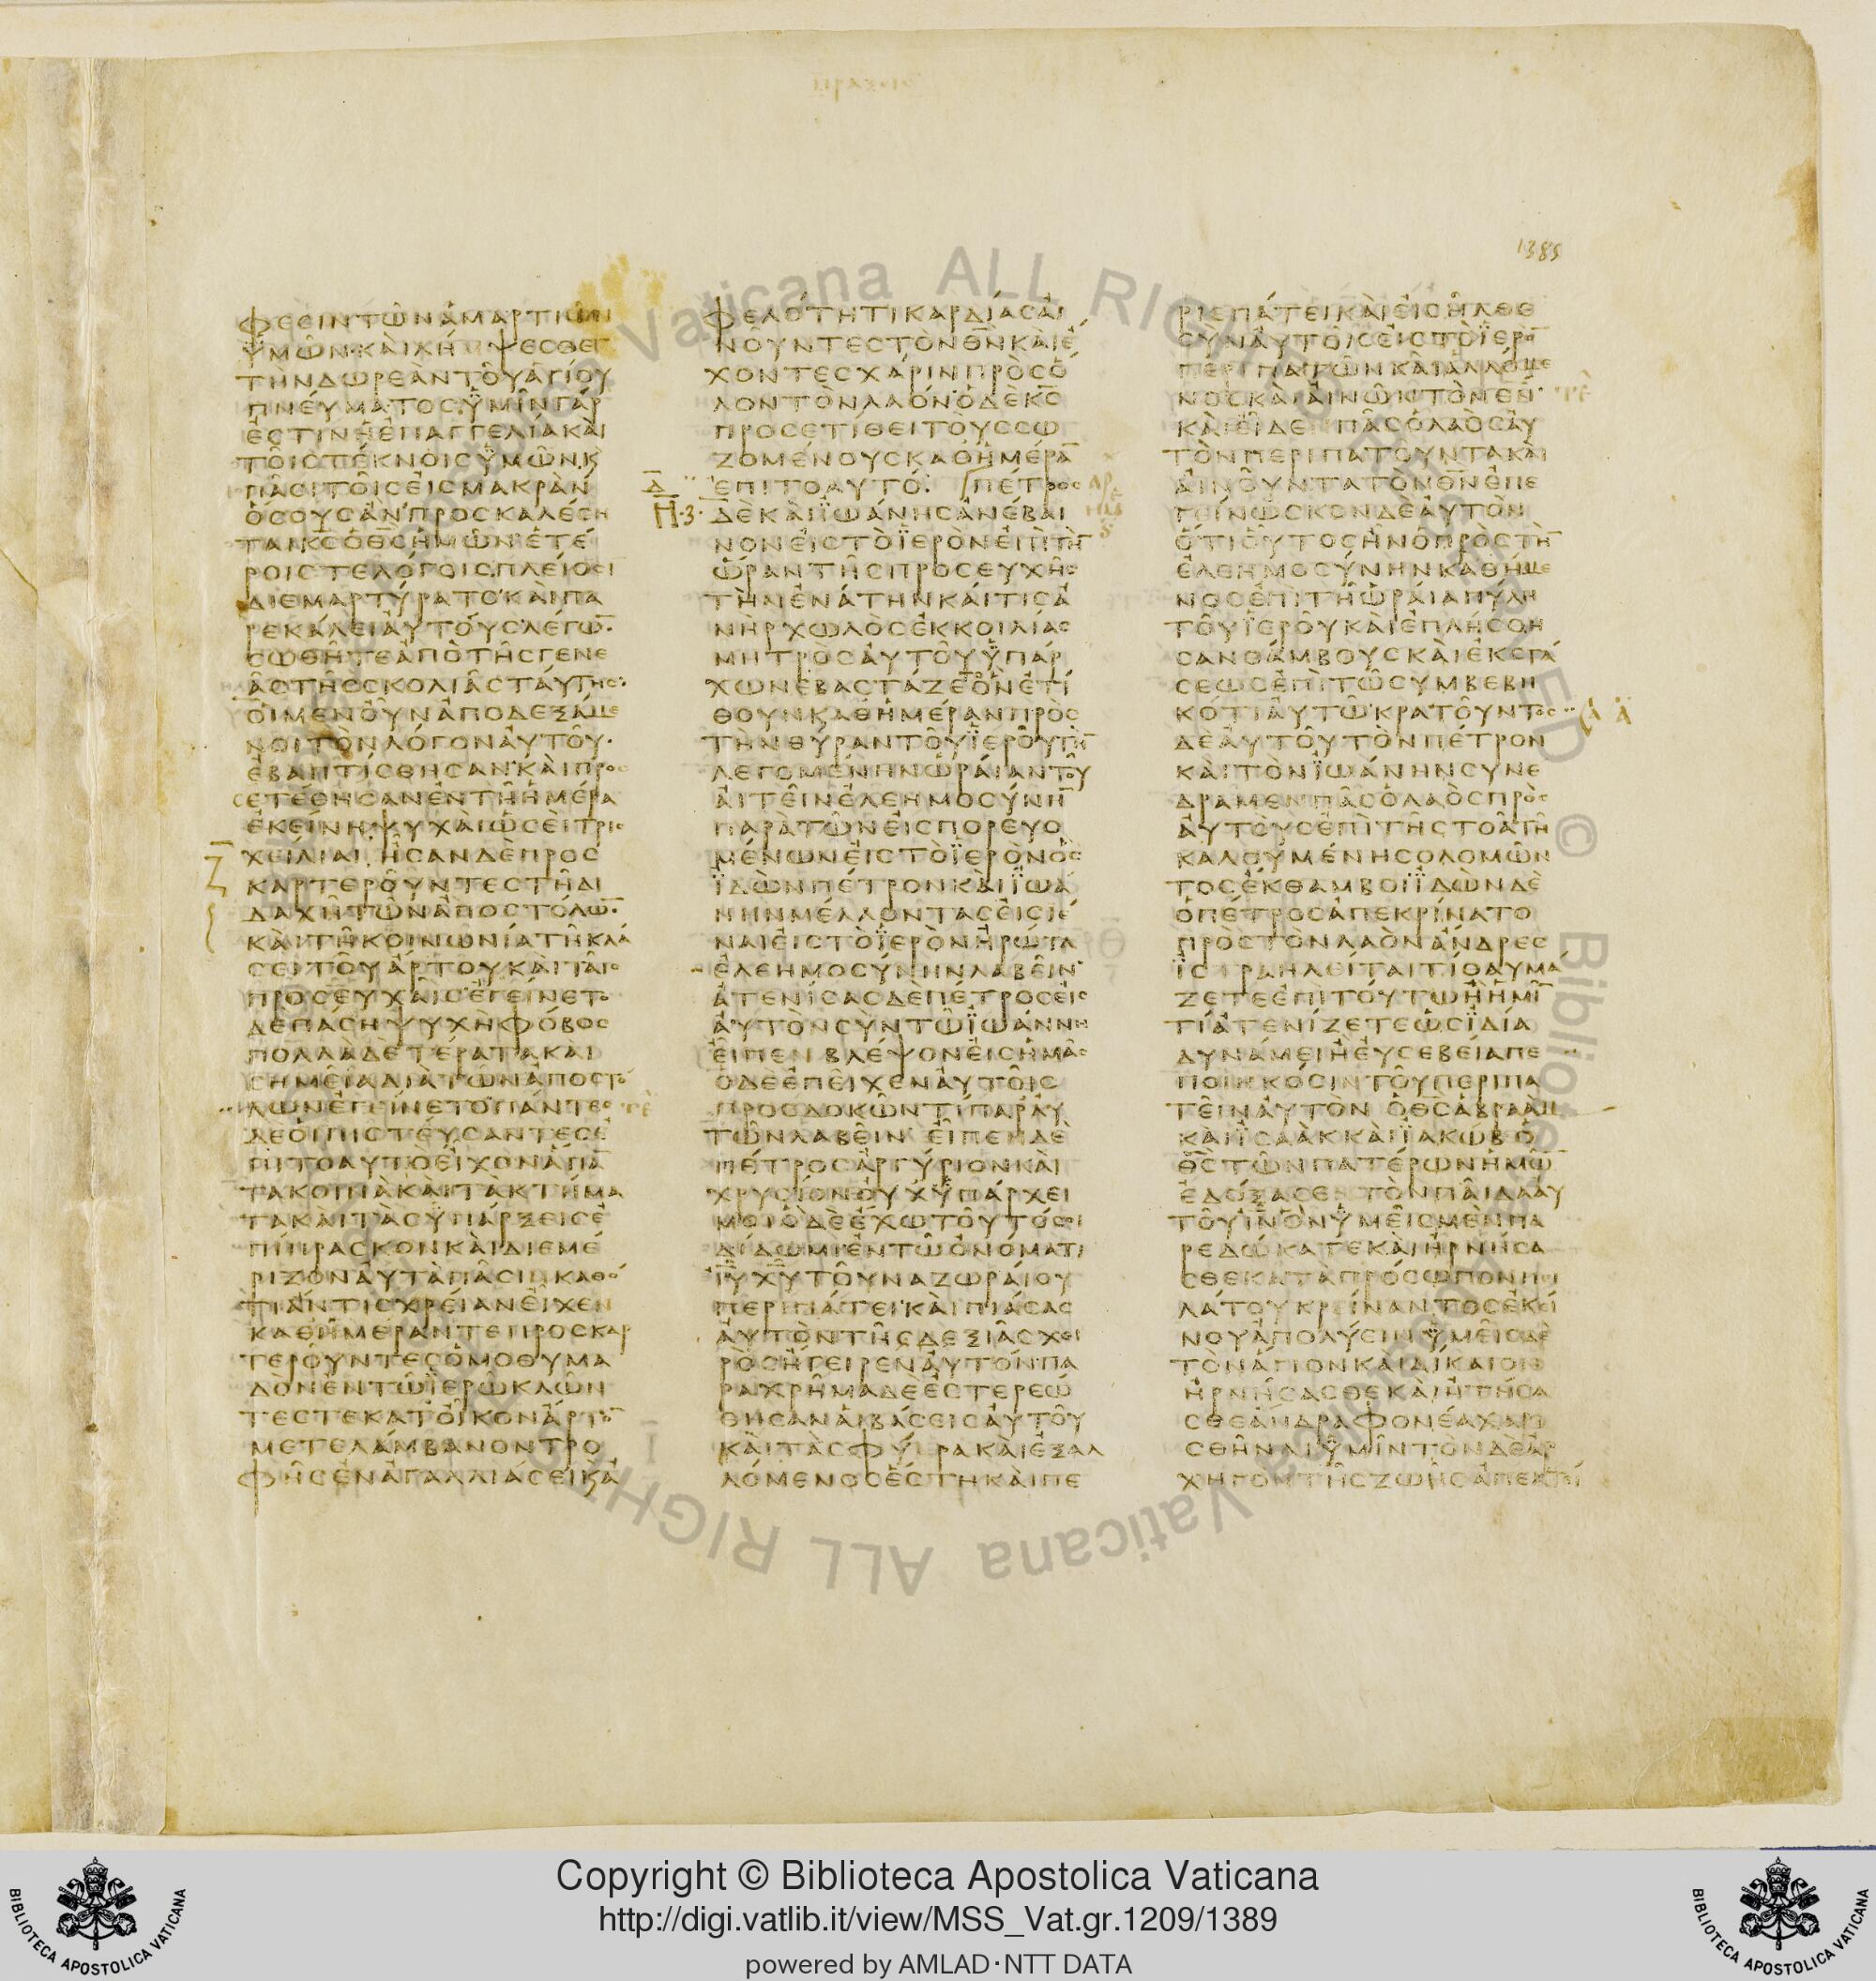 1385
φεσιντωναμαρτιων
ϋμωνκαιλημψεσθε
τηνδωρεαντουαγιου
πνευματοσϋμινγαρ
εστινηεπαγγελιακαι
τοιστεκνοισϋμωνκ
πασιτοισεισμακραν
οσουσανπροσκαλεση
ταικ̅σ̅οθ̅σ̅ημωνετε
ροιστελογοισπλειοσι
διεμαρτυρατοκαιπα
ρεκαλειαυτουσλεγω̅
σωθητεαποτησγενε
αστησσκολιασταυτησ
οιμενουναποδεξαμε
νοιτονλογοναυτου
εβαπτισθησανκαιπροσ
ετεθησανεντηημερα
εκεινηψυχαιωσειτρισ
χειλιαιησανδεπροσ
καρτερουντεστηδι
δαχητωναποστολω̅
καιτηκοινωνιατηκλα
σειτουαρτουκαιταισ
προσευχαισεγεινετο
δεπασηψυχηφοβοσ
πολλαδετερατακαι
σημειαδιατωναποστο
λωνεγεινετοπαντεσ
δεοιπιστευσαντεσε
πιτοαυτοειχοναπα̅
τακοινακαιτακτημα
τακαιτασϋπαρξεισε
πιπρασκονκαιδιεμε
ριζοναυταπασινκαθο
τιαντισχρειανειχεν
καθημεραντεπροσκαρ
τερουντεσομοθυμα
δονεντωϊερωκλων
τεστεκατοικοναρτο̅
μετελαμβανοντρο
φησεναγαλλιασεικα
φελοτητικαρδιασαι
νουντεστονθ̅ν̅καιε
χοντεσχαρινπροσο
λοντονλαονοδεκ̅σ̅
προσετιθειτουσσω
ζομενουσκαθημερα̅
επιτοαυτο πετροσ
δεκαιϊωανησανεβαι
νονειστοϊερονεπιτη̅
ωραντησπροσευχησ
τηνενατηνκαιτισα
νηρχωλοσεκκοιλιασ
μητροσαυτουϋπαρ
χωνεβασταζετοονετι
θουνκαθημερανπροσ
τηνθυραντουϊερουτη̅
λεγομενηνωραιαντου
αιτεινελεημοσυνη̅
παρατωνεισπορευο
μενωνειστοϊερονοσ
ϊδωνπετρονκαιϊωα
νηνμελλοντασεισιε
ναιειστοϊερονηρωτα
ελεημοσυνηνλαβειν
ατενισασδεπετροσεισ
αυτονσυντωϊωαννη
ειπενβλεψονεισημασ
οδεεπειχεναυτοισ
προσδοκωντιπαραυ
τωνλαβειν ειπενδε
πετροσαργυριονκαι
χρυσιονουχϋπαρχει
μοιοδεεχωτουτοσοι
διδωμιεντωονοματι
ι̅υ̅χ̅υ̅τουναζωραιου
περιπατεικαιπιασασ
αυτοντησδεξιασχει
ροσηγειρεναυτονπα
ραχρημαδεεστερεω
θησαναιβασεισαυτου
καιτασφυδρακαιεξαλ
λομενοσεστηκαιπε
ριεπατεικαιεισηλθε
συναυτοισειστοϊερο̅
περιπατωνκαιαλλομε
νοσκαιαινωντονθ̅ν̅
καιειδε πασολαοσαυ
τονπεριπατουντακαι
αινουντατονθ̅ν̅επε
γεινωσκονδεαυτον
οτιουτοσηνοπροστη̅
ελεημοσυνηνκαθημε
νοσεπιτηωραιαπυλη
τουϊερουκαιεπλησθη
σανθαμβουσκαιεκστα
σεωσεπιτωσυμβεβη
κοτιαυτωκρατουντοσ
δεαυτουτονπετρον
καιτονϊωανηνσυνε
δραμενπασολαοσπροσ
αυτουσεπιτηστοατη
καλουμενησολομων
τοσεκθαμβοιϊδωνδε
οπετροσαπεκρινατο
προστονλαονανδρεσ
ϊσραηλειταιτιθαυμα
ζετεεπιτουτωηημι̅
τιατενιζετεωσϊδια
δυναμειηευσεβειαπε
ποιηκοσιντουπεριπα
τειναυτον οθ̅σ̅αβρααμ
καιϊσαακκαιϊακωβο
θ̅σ̅τωνπατερωνημω̅
εδοξασεντονπαιδααυ
τουι̅ν̅ονϋμεισμενπα
ρεδωκατεκαιηρνησα
σθεκαταπροσωπονπει
λατουκρειναντοσεκει
νουαπολυεινϋμεισδε
τοναγιονκαιδικαιον
ηρνησασθεκαιητησα
σθεανδραφονεαχαρι
σθηναιϋμιντονδεαρ
χηγοντησζωησαπεκτει
Copyright © Biblioteca Apostolica Vaticana
http://digi.vatlib.it/view/MSS_Vat.gr.1209/1389
powered by AMLAD·NTT DATA
BIBLIOTECA APOSTOLICA VATICANA
BIBLIOTECA APOSTOLICA VATICANA